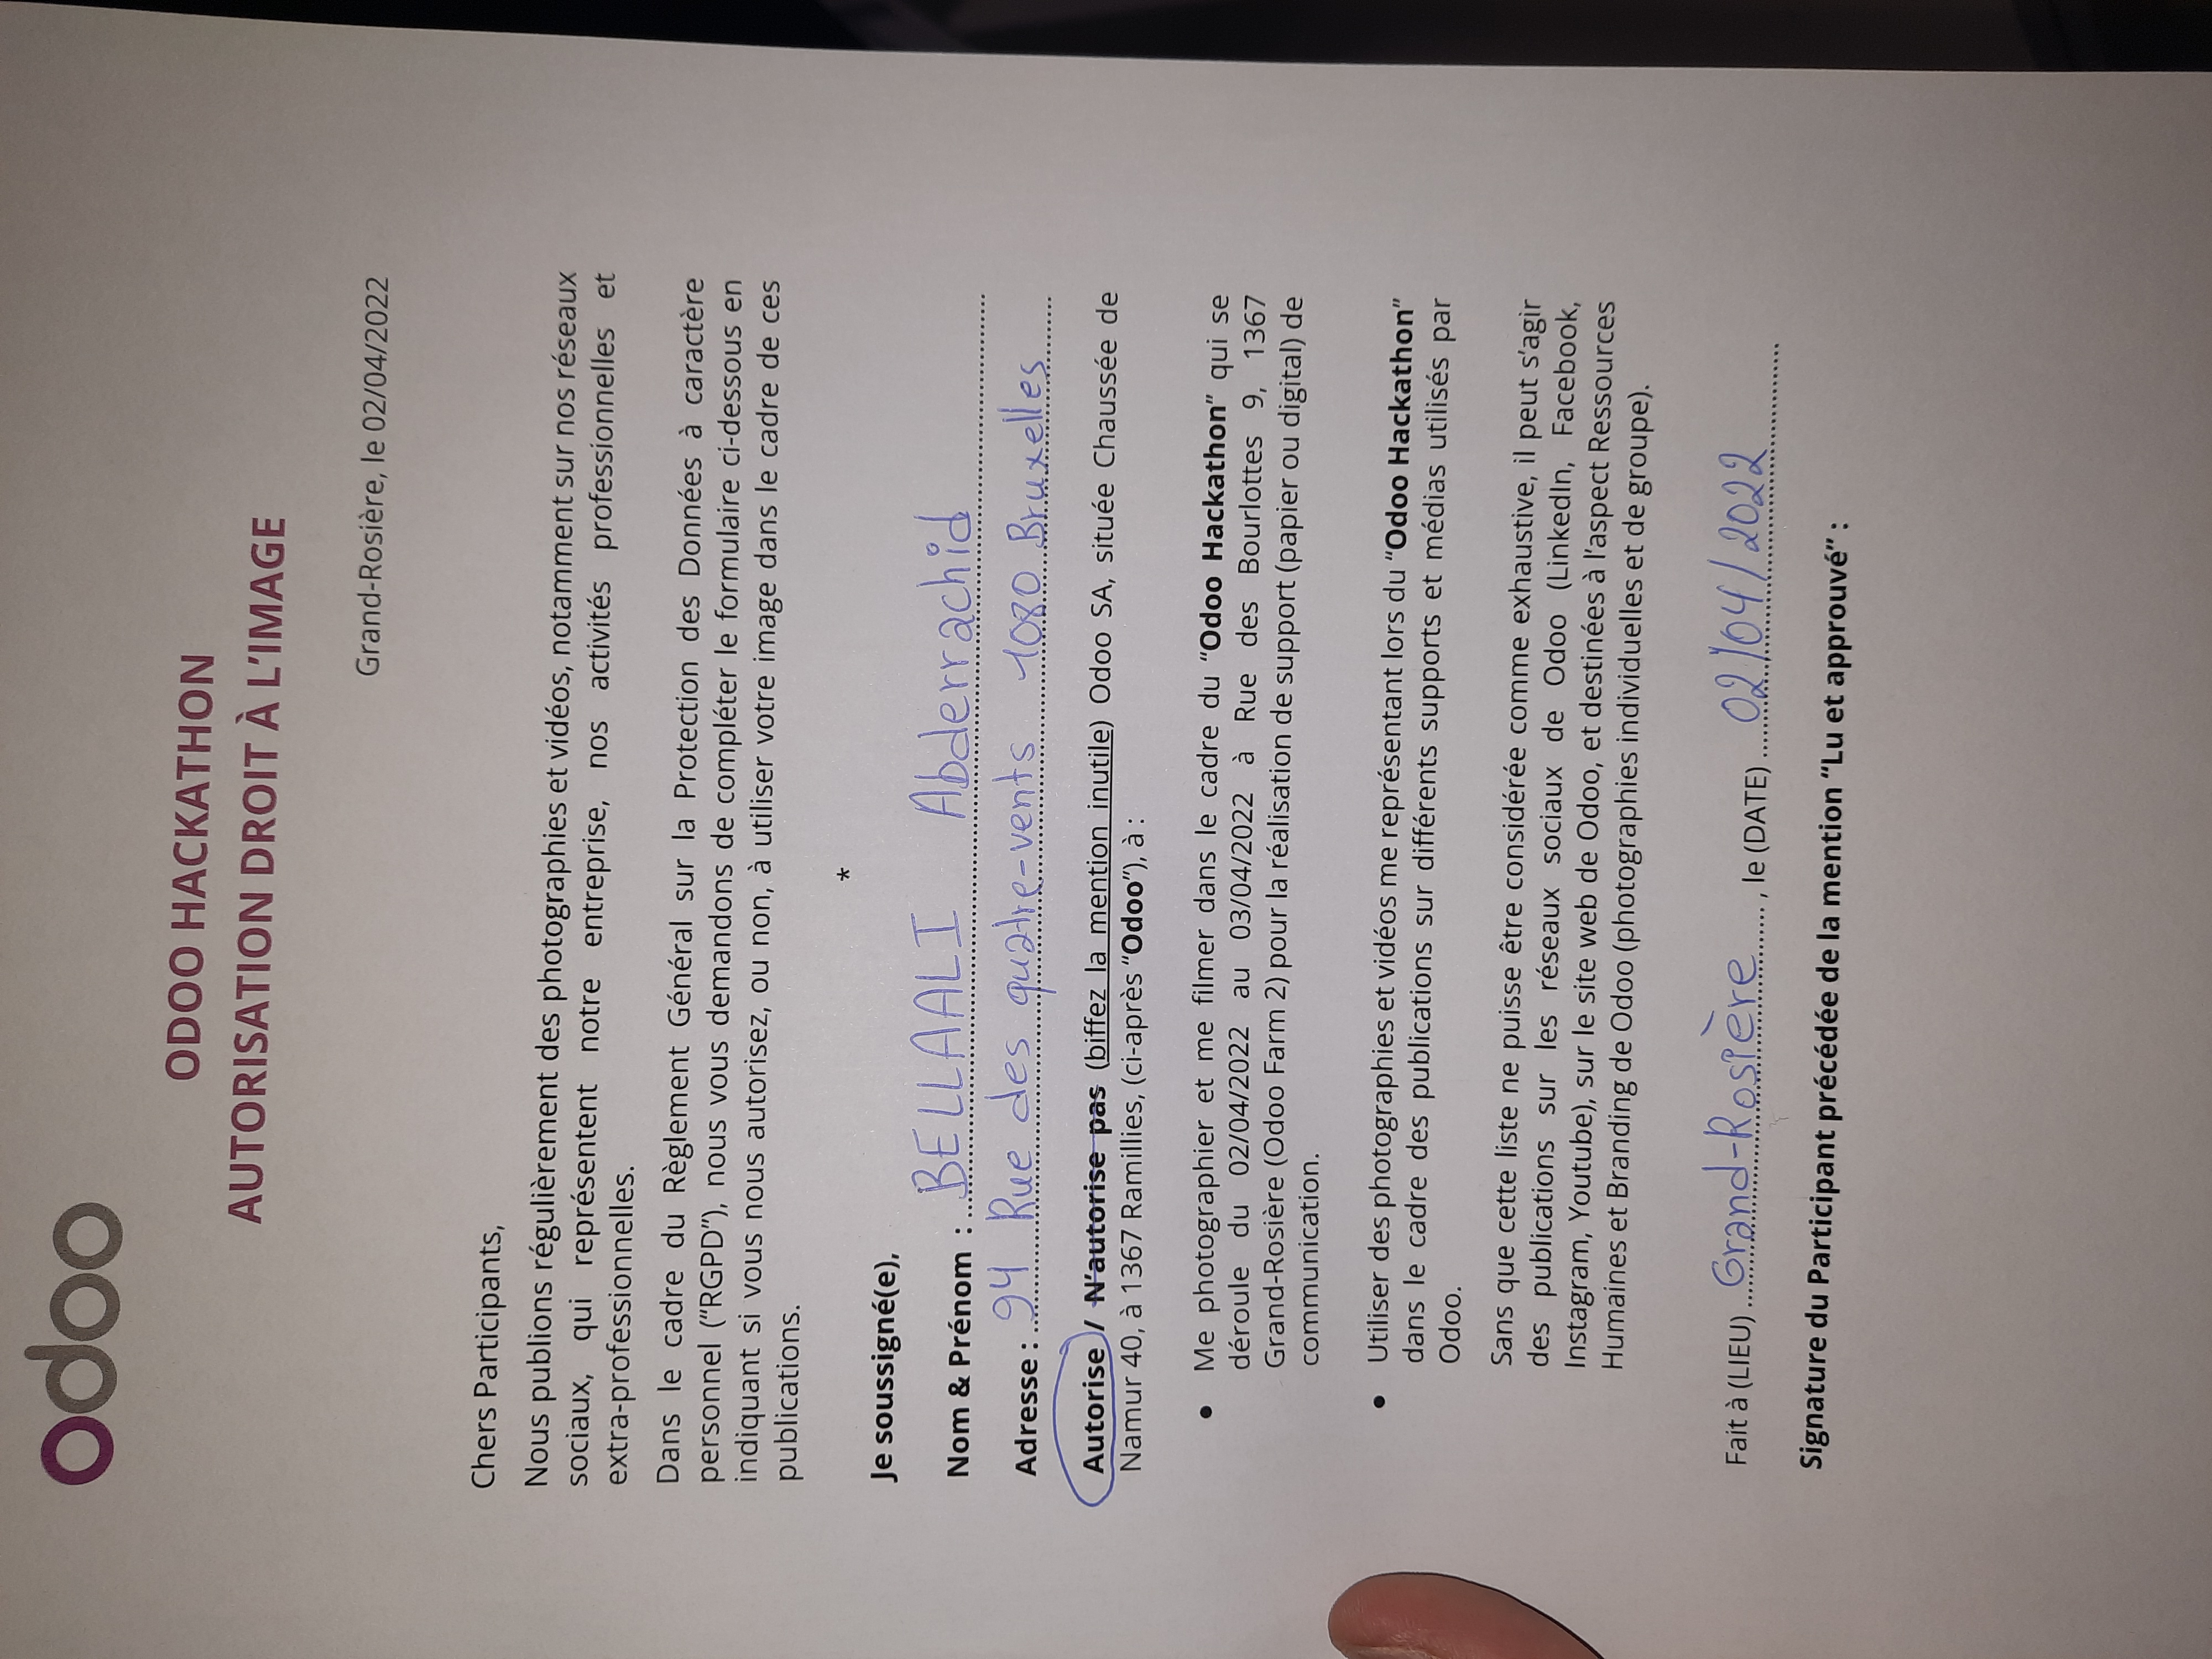 odoo
ODOO HACKATHON
AUTORISATION DROIT À L'IMAGE
Grand-Rosière, le 02/04/2022
Chers Participants,
Nous publions régulièrement des photographies et vidéos, notamment sur nos réseaux
sociaux, qui représentent notre entreprise, nos activités professionnelles et
extra-professionnelles.
Dans le cadre du Règlement Général sur la Protection des Données à caractère
personnel (“RGPD”), nous vous demandons de compléter le formulaire ci-dessous en
indiquant si vous nous autorisez, ou non, à utiliser votre image dans le cadre de ces
publications.
*
Je soussigné(e),
Nom & Prénom : BELLAALI Abderrachid
Adresse : 94 Rue des quatre-vents 1080 Bruxelles
Autorise / N'autorise pas (biffez la mention inutile) Odoo SA, située Chaussée de
Namur 40, à 1367 Ramillies, (ci-après “Odoo”), à :
• Me photographier et me filmer dans le cadre du “Odoo Hackathon” qui se
déroule du 02/04/2022 au 03/04/2022 à Rue des Bourlottes 9, 1367
Grand-Rosière (Odoo Farm 2) pour la réalisation de support (papier ou digital) de
communication.
• Utiliser des photographies et vidéos me représentant lors du “Odoo Hackathon”
dans le cadre des publications sur différents supports et médias utilisés par
Odoo.
Sans que cette liste ne puisse être considérée comme exhaustive, il peut s'agir
des publications sur les réseaux sociaux de Odoo (LinkedIn, Facebook,
Instagram, Youtube), sur le site web de Odoo, et destinées à l'aspect Ressources
Humaines et Branding de Odoo (photographies individuelles et de groupe).
Fait à (LIEU) Grand-Rosière, le (DATE) 02/04/2022
Signature du Participant précédée de la mention “Lu et approuvé” :